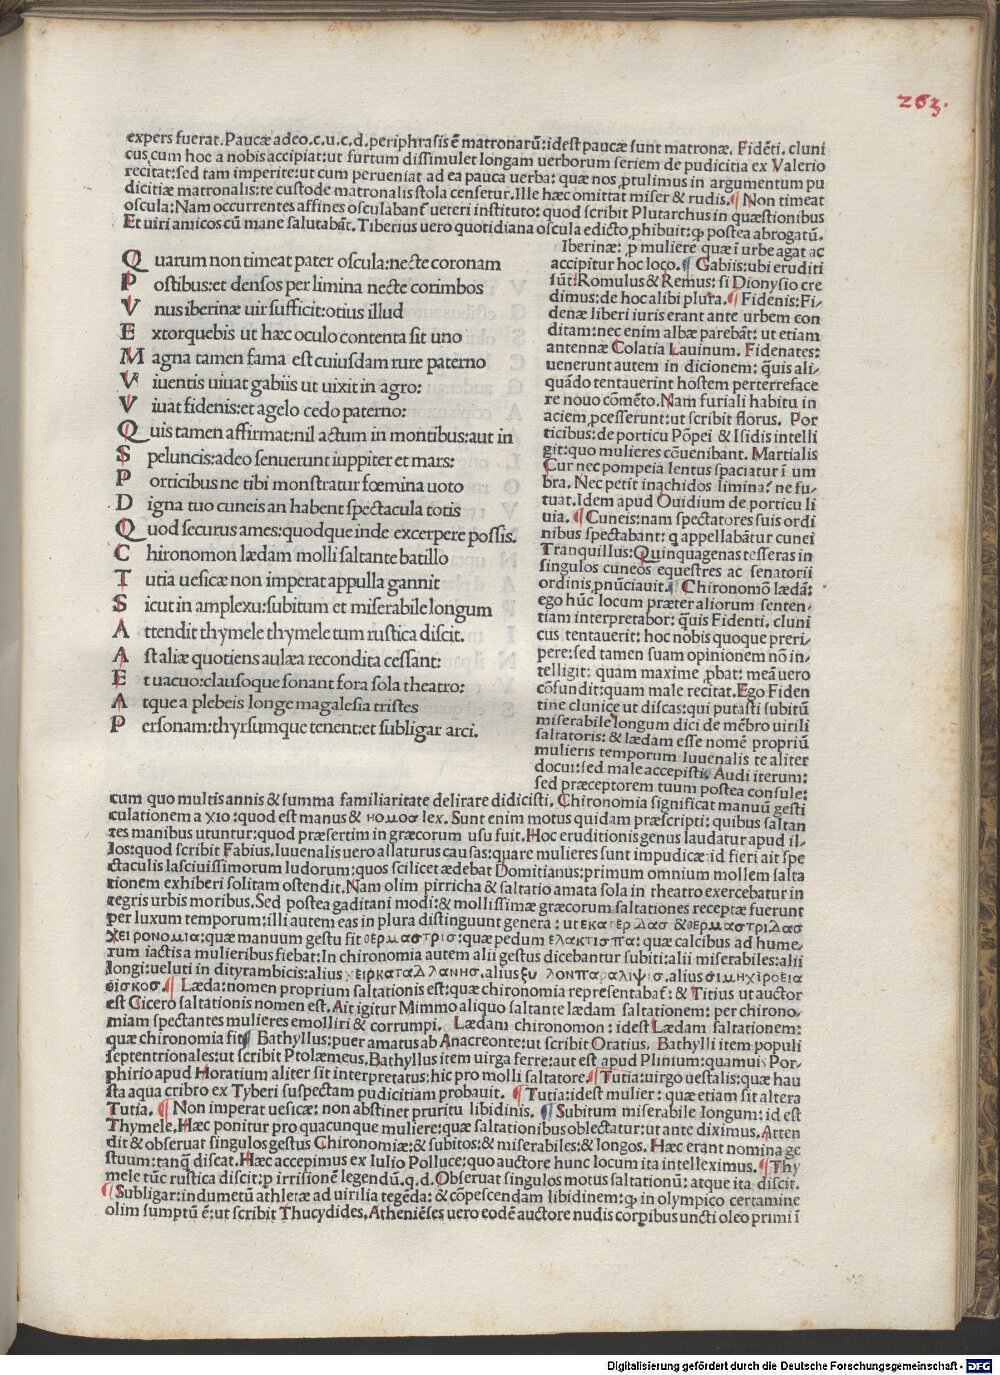 263.
expers fuerat. Paucæ adeo.c.u.c.d.periphrasis ē matronarū:idest paucæ sunt matronæ. Fidēti. cluni
cus cum hoc a nobis accipiat:ut furtum dissimulet longam uerborum seriem de pudicitia ex Valerio
recitat:sed tam imperite:ut cum perueniat ad ea pauca uerba: quæ nos ꝓtulimus in argumentum pu
dicitiæ matronalis:te custode matronalis stola censetur.Ille hæc omittat miser & rudis.¶ Non timeat
oscula:Nam occurrentes affines osculabant᷑ ueteri instituto: quod scribit Plutarchus in quæstionibus
Et uiri amicos cū mane salutabāt. Tiberius uero quotidiana oscula edicto ꝓhibuit:ꝙ postea abrogatū.
Q uarum non timeat pater oscula:necte coronam
P ostibus:et densos per limina necte corimbos
V nus iberinæ uir sufficit:otius illud
E xtorquebis ut hæc oculo contenta sit uno
M agna tamen fama est cuiusdam rure paterno
V iuentis uiuat gabiis ut uixit in agro:
V iuat fidenis:et agelo cedo paterno:
Q uis tamen affirmat:nil actum in montibus:aut in
S peluncis:adeo senuerunt iuppiter et mars:
P orticibus ne tibi monstratur fœmina uoto
D igna tuo cuneis an habent spectacula totis
Q uod securus ames:quodque inde excerpere possis.
C hironomon lædam molli saltante batillo
T utia uesicæ non imperat appulla gannit
S icut in amplexu:subitum et miserabile longum
A ttendit thymele thymele tum rustica discit.
A st aliæ quotiens aulæa recondita cessant:
E t uacuo:clausoque sonant fora sola theatro:
A tque a plebeis longe magalesia tristes
P ersonam:thyrsumque tenent:et subligar acci.
Iberinæ: ꝓ muliere quæ ī urbe agat ac
accipitur hoc loco.¶ Gabiis:ubi eruditi
sūt:Romulus & Remus:si Dionysio cre
dimus:de hoc alibi plura.¶ Fidenis:Fi-
denæ liberi iuris erant ante urbem con
ditam:nec enim albæ parebāt: ut etiam
antennæ Colatia Lauinum. Fidenates:
uenerunt autem in dicionem: q̄uis ali-
quādo tentauerint hostem perterreface
re nouo cōmēto.Nam furiali habitu in
aciem ꝓcesserunt:ut scribit florus. Por
ticibus:de porticu Pōpei & Isidis intelli
git:quo mulieres cōuenibant. Martialis
Cur nec pompeia lentus spaciatur ī um
bra. Nec petit inachidos limina? ne fu-
tuat.Idem apud Ouidium de porticu li
uia. ¶ Cuneis:nam spectatores suis ordi
nibus spectabant: q appellabātur cunei
Tranquillus:Quinquagenas tesseras in
singulos cuneos equestres ac senatorii
ordinis ꝓnūciauit.¶ Chironomō lædā:
ego hūc locum præter aliorum senten-
tiam interpretabor: q̄uis Fidenti. cluni
cus tentauerit: hoc nobis quoque preri-
pere:sed tamen suam opinionem nō in-
telligit: quam maxime ꝓbat: meā uero
cōfundit:quam male recitat.Ego Fiden
tine clunice ut discas:qui putasti subitū
miserabile longum dici de mēbro uirili
saltatoris: & lædam esse nomē propriū
mulieris temporum Iuuenalis te aliter
docui:sed male accepisti. Audi iterum:
sed præceptorem tuum postea consule:
cum quo multis annis & summa familiaritate delirare didicisti. Chironomia significat manuū gesti
culationem a χιο:quod est manus & νομοσ lex. Sunt enim motus quidam præscripti: quibus saltan
tes manibus utuntur:quod præsertim in græcorum usu fuit.Hoc eruditionis genus laudatur apud il-
los:quod scribit Fabius.Iuuenalis uero allaturus causas:quare mulieres sunt impudicæ id fieri ait spe
ctaculis lasciuissimorum ludorum:quos scilicet ædebat Domitianus:primum omnium mollem salta
tionem exhiberi solitam ostendit.Nam olim pirricha & saltatio amata sola in theatro exercebatur in
tegris urbis moribus.Sed postea gaditani modi:& mollissimæ græcorum saltationes receptæ fuerunt
per luxum temporum:illi autem eas in plura distinguunt genera : ut εκατερΔασ &θερμαστριΔασ
χειρονομια:quæ manuum gestu fit θερμαστρισ:quæ pedum ελακτισπα: quæ calcibus ad hume-
rum iactis a mulieribus fiebat:In chironomia autem alii gestus dicebantur subiti:alii miserabiles:alii
longi:ueluti in dityrambicis:alius χειρκαταΔλανησ.alius ξυλονπαραλιψισ.alius σιμηχιροεια
θισκοσ.¶ Læda:nomen proprium saltationis est:quæ chironomia representabat᷑: & Titius ut auctor
est Cicero saltationis nomen est. Ait igitur Mimmo aliquo saltante lædam saltationem: per chirono-
miam spectantes mulieres emolliri & corrumpi. Lædam chironomon : idest Lædam saltationem:
quæ chironomia fit¶ Bathyllus:puer amatus ab Anacreonte:ut scribit Oratius. Bathylli item populi
septentrionales:ut scribit Ptolæmeus.Bathyllus item uirga ferre:aut est apud Plinium:quamuis Por-
phirio apud Horatium aliter sit interpretatus:hic pro molli saltatore.¶ Tutia:uirgo uestalis:quæ hau
sta aqua cribro ex Tyberi suspectam pudicitiam probauit. ¶ Tutia:idest mulier: quæ etiam sit altera
Tutia. ¶ Non imperat uesicæ: non abstinet pruritu libidinis. ¶ Subitum miserabile longum: id est
Thymele.Hæc ponitur pro quacunque muliere:quæ saltationibus oblectatur:ut ante diximus. Atten
dit & obseruat singulos gestus Chironomiæ:& subitos:& miserabiles:& longos. Hæc erant nomina ge
stuum:tanq̄ discat.Hæc accepimus ex Iulio Polluce:quo auctore hunc locum ita intelleximus.¶ Thy
mele tūc rustica discit:ꝓ irrisionē legendū.q.d.Obseruat singulos motus saltationū: atque ita discit.
¶Subligar:indumetū athletæ ad uirilia tegēda: & cōpescendam libidinem:ꝙ in olympico certamine
olim sumptū ē:ut scribit Thucydides.Atheniēses uero eodē auctore nudis corpibus uncti oleo primi ī
Digitalisierung gefördert durch die Deutsche Forschungsgemeinschaft - DFG